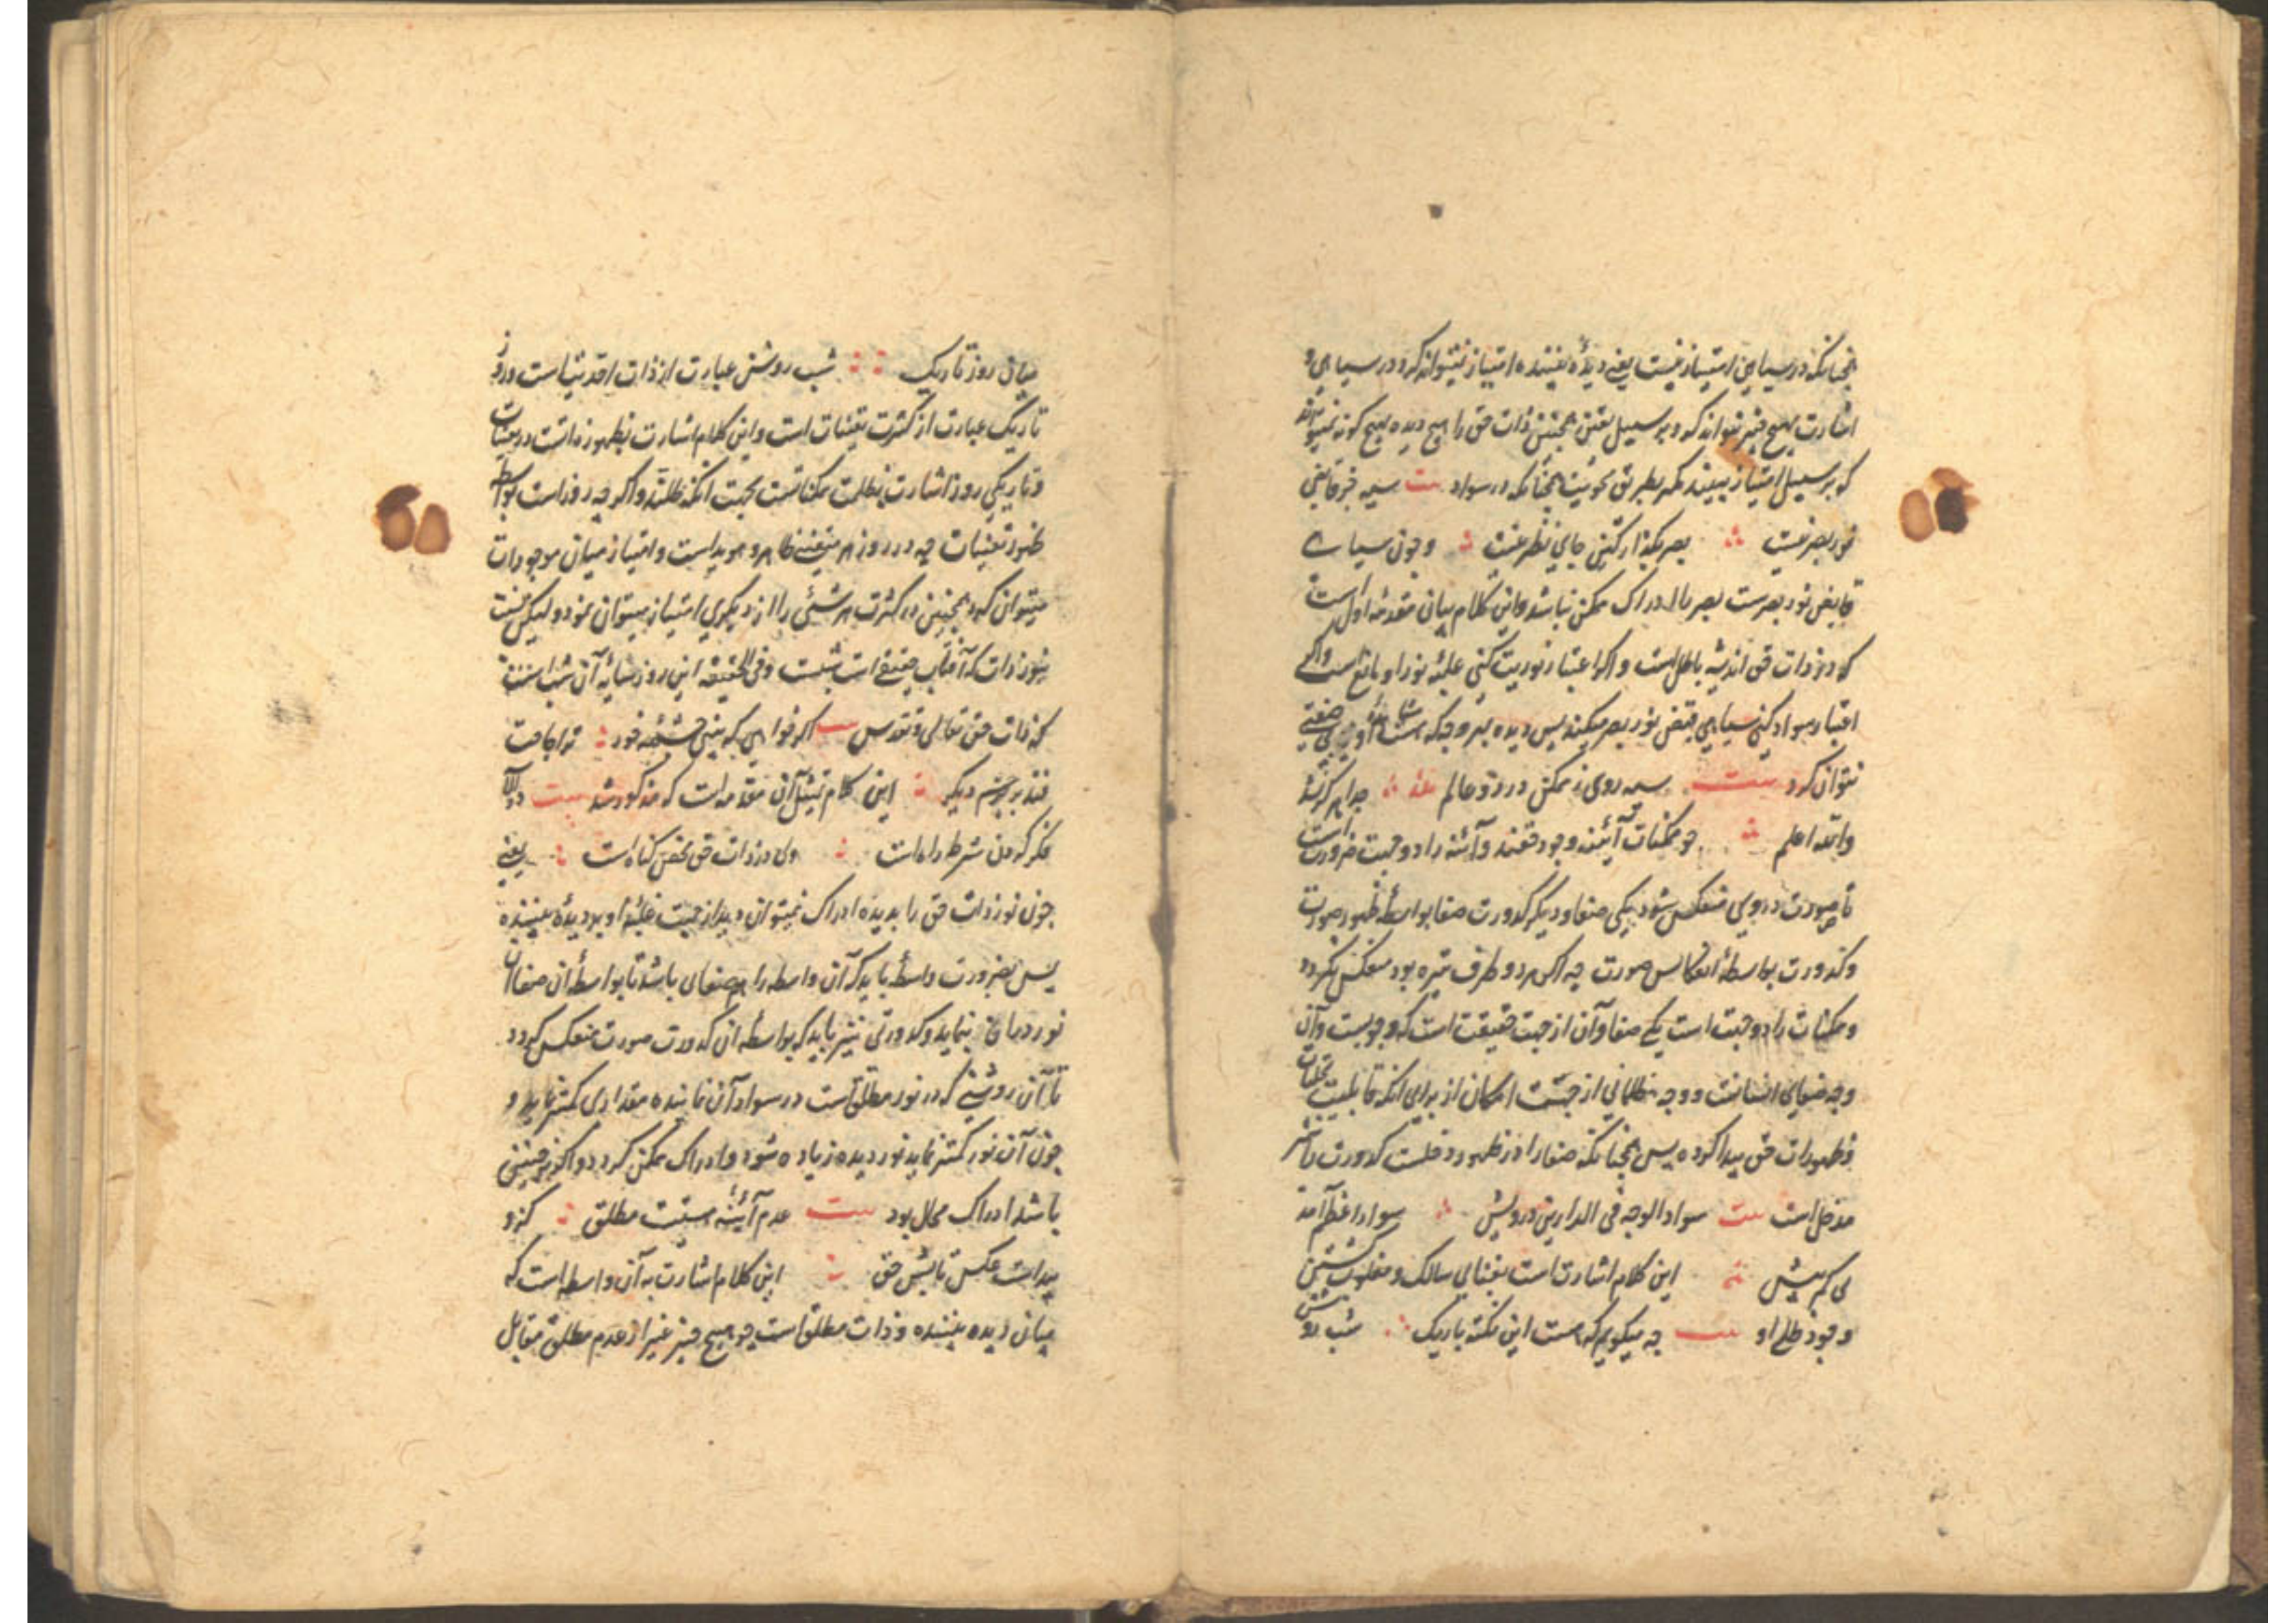 چنانکه در سیاهی امتیاز نیست یعنی دیدهٔ بیننده امتیاز نیتواند کرد در سیاهی و
اشارت بهیچ چیز نتواند کرد بر سبیل تعین همچنین ذات حق را هیچ دیده بهیچ گونه نمیتواند
که بر سبیل امتیاز بیند مگر بطریق محویت همچنانکه در سواد بیت سیه جز قابض
نور بصر نیست بصر بگذار کین جای نظر نیست و چون سیاهی
قابض نور بصرست بصر را ادراک ممکن نباشد و این کلام بیان مقدمه اول است
که در ذات حق اندیشه باطل است و اگر اعتبار نوریت کنی غلبهٔ نور او مانع است و اگر
اعتبار سواد کنی سیاهی قبض نور بصر میکند پس دیده بهر وجه که
نتوان کرد بیت سیه روی ز ممکن در دو عالم جدا هرگز نشد
والله اعلم چو ممکنات آئینه وجود حقند و آئینه را دو جهت ضرورت است
تا صورت در وی منعکس شود یکی صفا و دیگر کدورت صفا بواسطهٔ ظهور صورت
و کدورت بواسطهٔ انعکاس صورت چه اگر هر دو طرف تیره بود منعکس نگردد
و ممکنات را دو جهت است یکی صفا و آن از جهت حقیقت است که وجوبست و آن
وجه ضیای انسانست و وجه ظلمانی از جهت امکان از برای انکه قابلیت تجلیات
و ظهورات حق پیدا کرده پس همچنانکه صفا را در ظهور دخلست کدورت را نیز
مدخل است بیت سواد الوجه فی الدارین درویش سواد اعظم آمد
بی کم بیش این کلام اشارت است بفنای سالک و مغلوب گشتن
وجود ظلی او بیت چه میگویم که هست این نکته باریک شب روشن
میان روز تاریک شب روشن عبارت از ذات احدیتست و روز
تاریک عبارت از کثرت تعینات است و این کلام اشارت بظهور ذاتست در تعینات
و تاریکی روز اشارت بظلمت ممکناتست بجهت انکه ظلمتند و اگر چه روز است بواسطه
ظهور تعینات چه در روز هر متعینی ظاهر و هویداست و امتیاز میان موجودات
میتوان کرد همچنین در کثرت هر شئی را از دیگری امتیاز میتوان نمود و لیکن نسبت
بنور ذات که آفتاب حقیقی است شبست و فی الحقیقه این روز سایهٔ آن شب است
که ذات حق تعالی و تقدس بیت اگر خواهی که بینی چشمه خور ترا حاجت
فتد بر چشم دیگر این کلام تمثیل آن مقدمه است که مذکور شد بیت در آلا
فکر کردن شرط راه است ولی در ذات حق محض گناه است یعنی
چون نور ذات حق را بدیده ادراک نمیتوان دید از جهت غلبهٔ او بر دیدهٔ بیننده
پس بضرورت واسطهٔ باید که آن واسطه را هم صفای باشد تا بواسطهٔ ان صفا آن
نور در ان بنماید و کدورتی نیز باید که بواسطه ان کدورت صورت منعکس گردد
تا آن روشنی که در نور مطلق است در سواد آن نماینده مقداری کمتر نماید و
چون آن نور کمتر نماید نور دیده زیاده شود و ادراک ممکن گردد و اگر نه چنین
باشد ادراک محال بود بیت عدم آئینهٔ هستیست مطلق کزو
پیداست عکس تابش حق این کلام اشارت به آن واسطه است که
میان دیده بیننده و ذات مطلق است چو هیچ چیز غیر از عدم مطلق مقابل